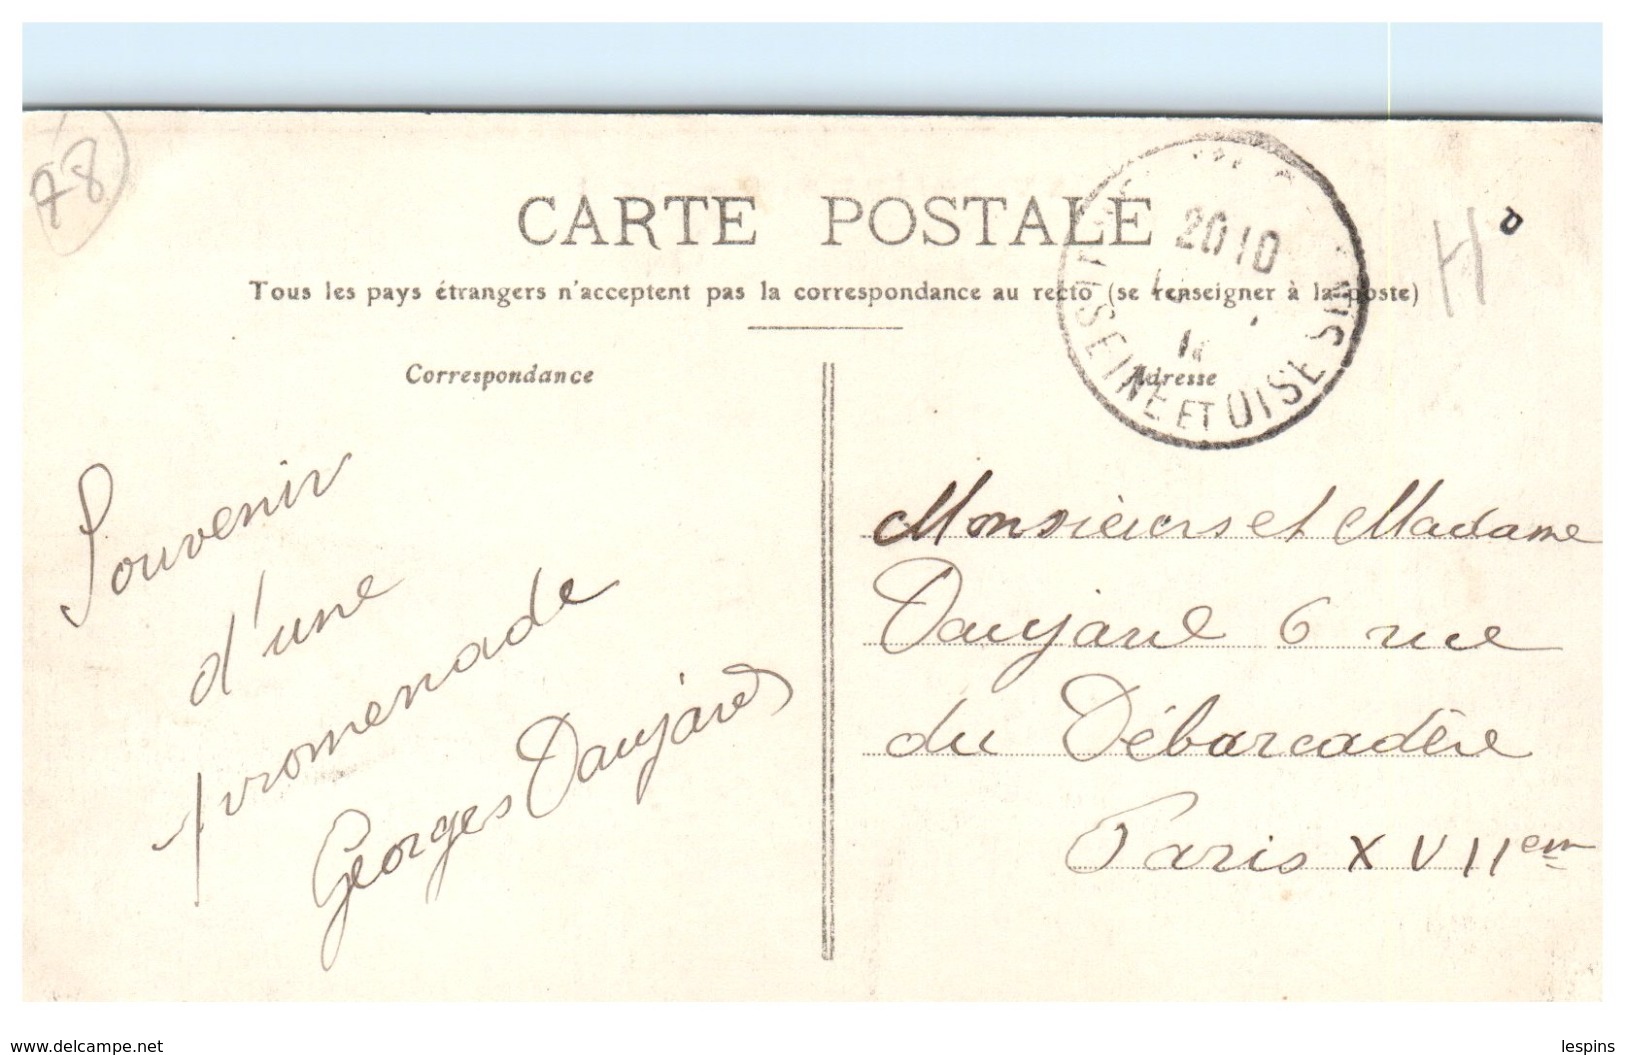 78
CARTE POSTALE
Tous les pays étrangers n'acceptent pas la correspondance au recto (se renseigner à la poste)
2010
SEINE ET OISE
H
Correspondance
Adresse
Souvenir
d'une
promenade
Georges Daujard
Monsieurs et Madame
Daujard 6 rue
du Débarcadère
Paris XVIIem
www.delcampe.net
lespins